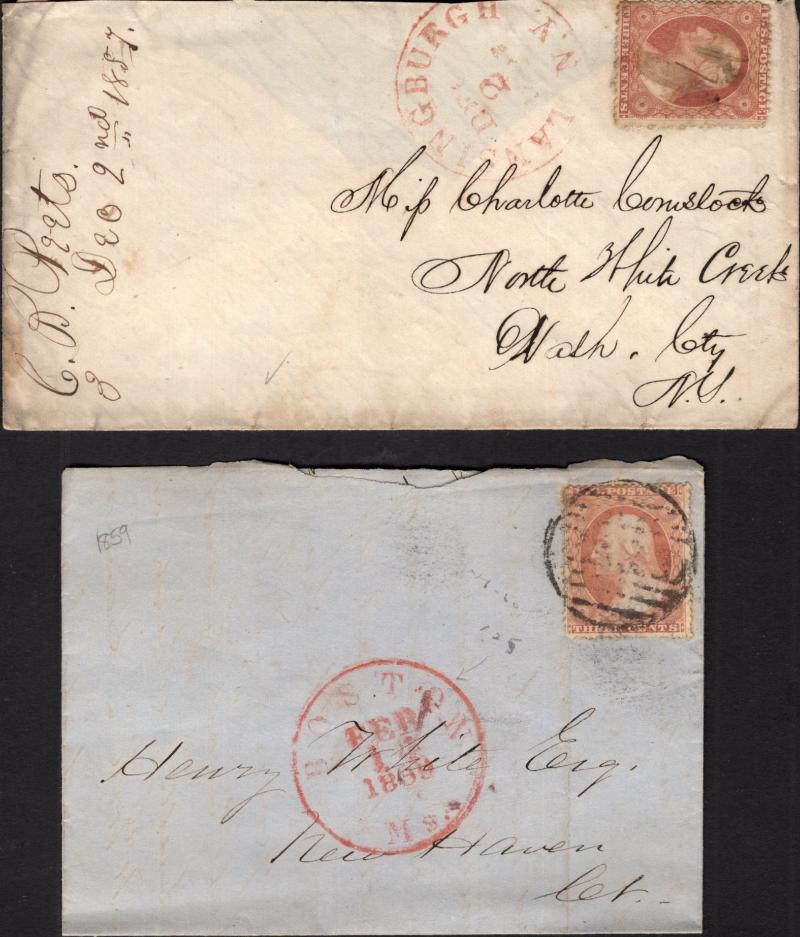 C. B. Peets.
Dec 2nd 1857.
3
LANSINGBURGH N.Y.
DEC
2
U.S. POSTAGE
THREE CENTS
Miſs Charlotte Comstock
North White Creek
Wash. Cty
N.Y.
1859
U.S. POSTAGE
THREE CENTS
125
BOSTON
FEB
1860
Ms.
Henry White Esq.
New Haven
Ct.